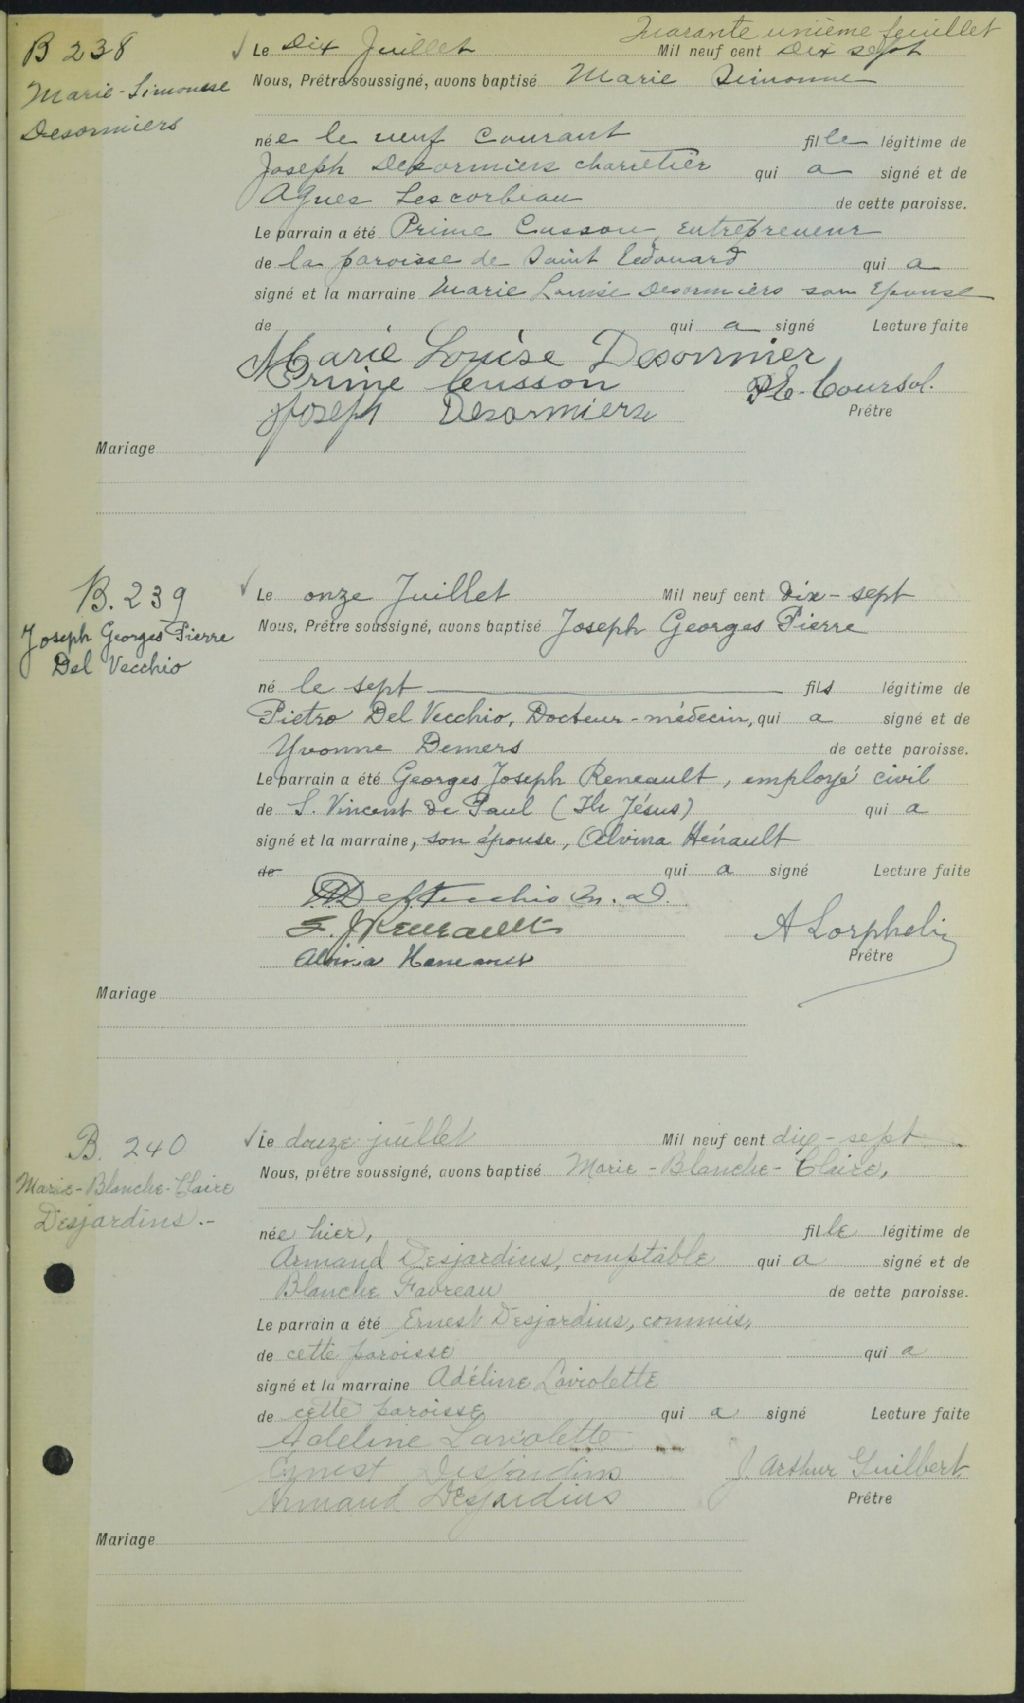 Quarante unième feuillet
B 238
Marie-Simonne
Desormiers
Le Dix Juillet Mil neuf cent Dix sept
Nous, Prêtre soussigné, avons baptisé Marie Simonne
née le neuf Courant fille légitime de
Joseph Desormiers charretier qui a signé et de
Agnes Lescorbeau de cette paroisse.
Le parrain a été Prime Cusson, Entrepreneur
de la paroisse de Saint Edouard qui a
signé et la marraine Marie Louise Desormiers son Epouse
de qui a signé Lecture faite
Marie Louise Desormier
Prime Cusson
P.E. Coursol.
Joseph Desormiers
Prêtre
Mariage
B. 239
Joseph Georges Pierre
Del Vecchio
Le onze Juillet Mil neuf cent dix-sept
Nous, Prêtre soussigné, avons baptisé Joseph Georges Pierre
né le sept fils légitime de
Pietro Del Vecchio, Docteur-médecin, qui a signé et de
Yvonne Demers de cette paroisse.
Le parrain a été Georges Joseph Reneault, employé civil
de S. Vincent de Paul (Ile Jésus) qui a
signé et la marraine, son épouse, Alvina Hénault
de qui a signé Lecture faite
DelVecchio M.D.
G. J Reneault
A Lorphelin
Alvina Heneault
Prêtre
Mariage
B. 240
Marie-Blanche-Claire
Desjardins.-
Le douze juillet Mil neuf cent dix-sept
Nous, prêtre soussigné, avons baptisé Marie-Blanche-Claire,
née hier, fille légitime de
Armand Desjardins, comptable qui a signé et de
Blanche Favreau de cette paroisse.
Le parrain a été Ernest Desjardins, commis,
de cette paroisse qui a
signé et la marraine Adéline Laviolette
de cette paroisse qui a signé Lecture faite
Adeline Laviolette
Ernest Desjardins
J. Arthur Guilbert
Armand Desjardins
Prêtre
Mariage